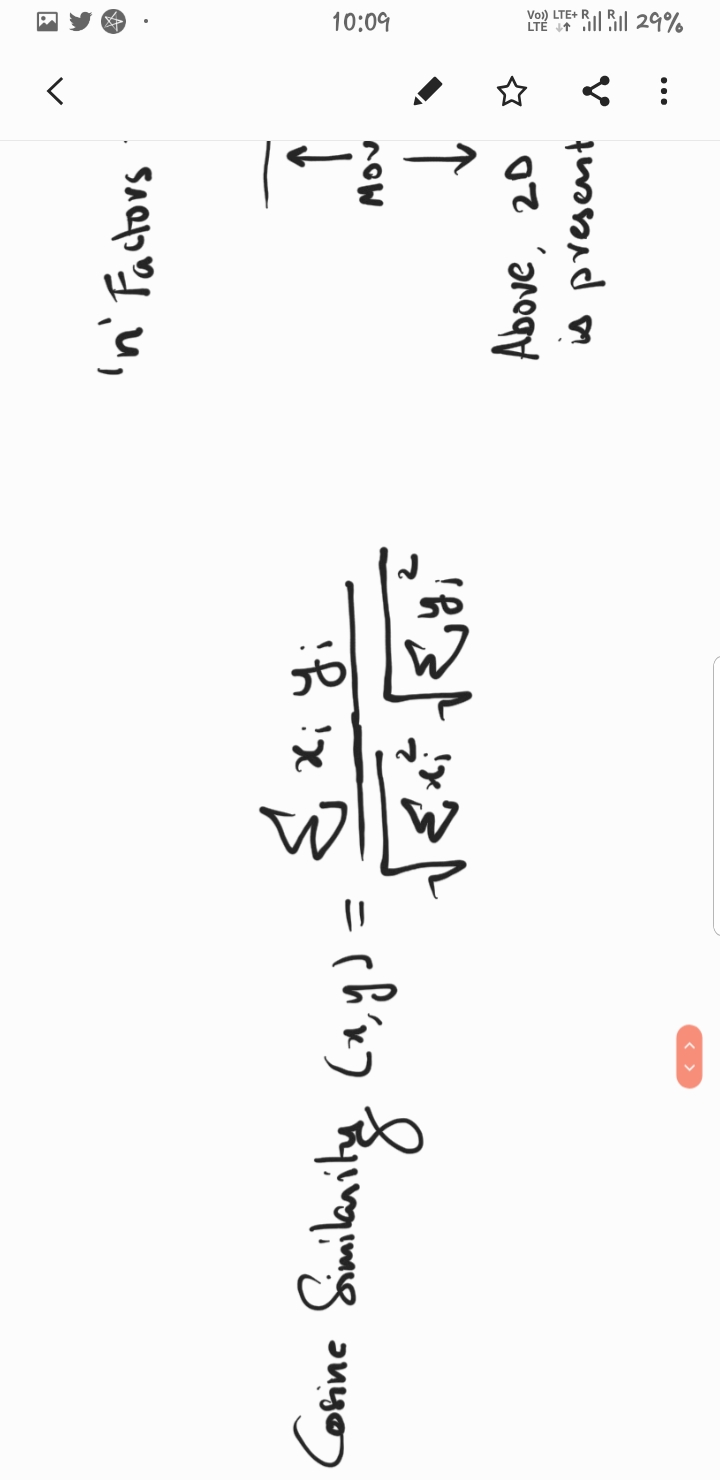 10:09
Vo)) LTE+ R R 29%
LTE
'n' Factors
Above, 2D
is present
Cosine Similarity (x,y) = Σ xi yi
√Σxi² √Σyi²